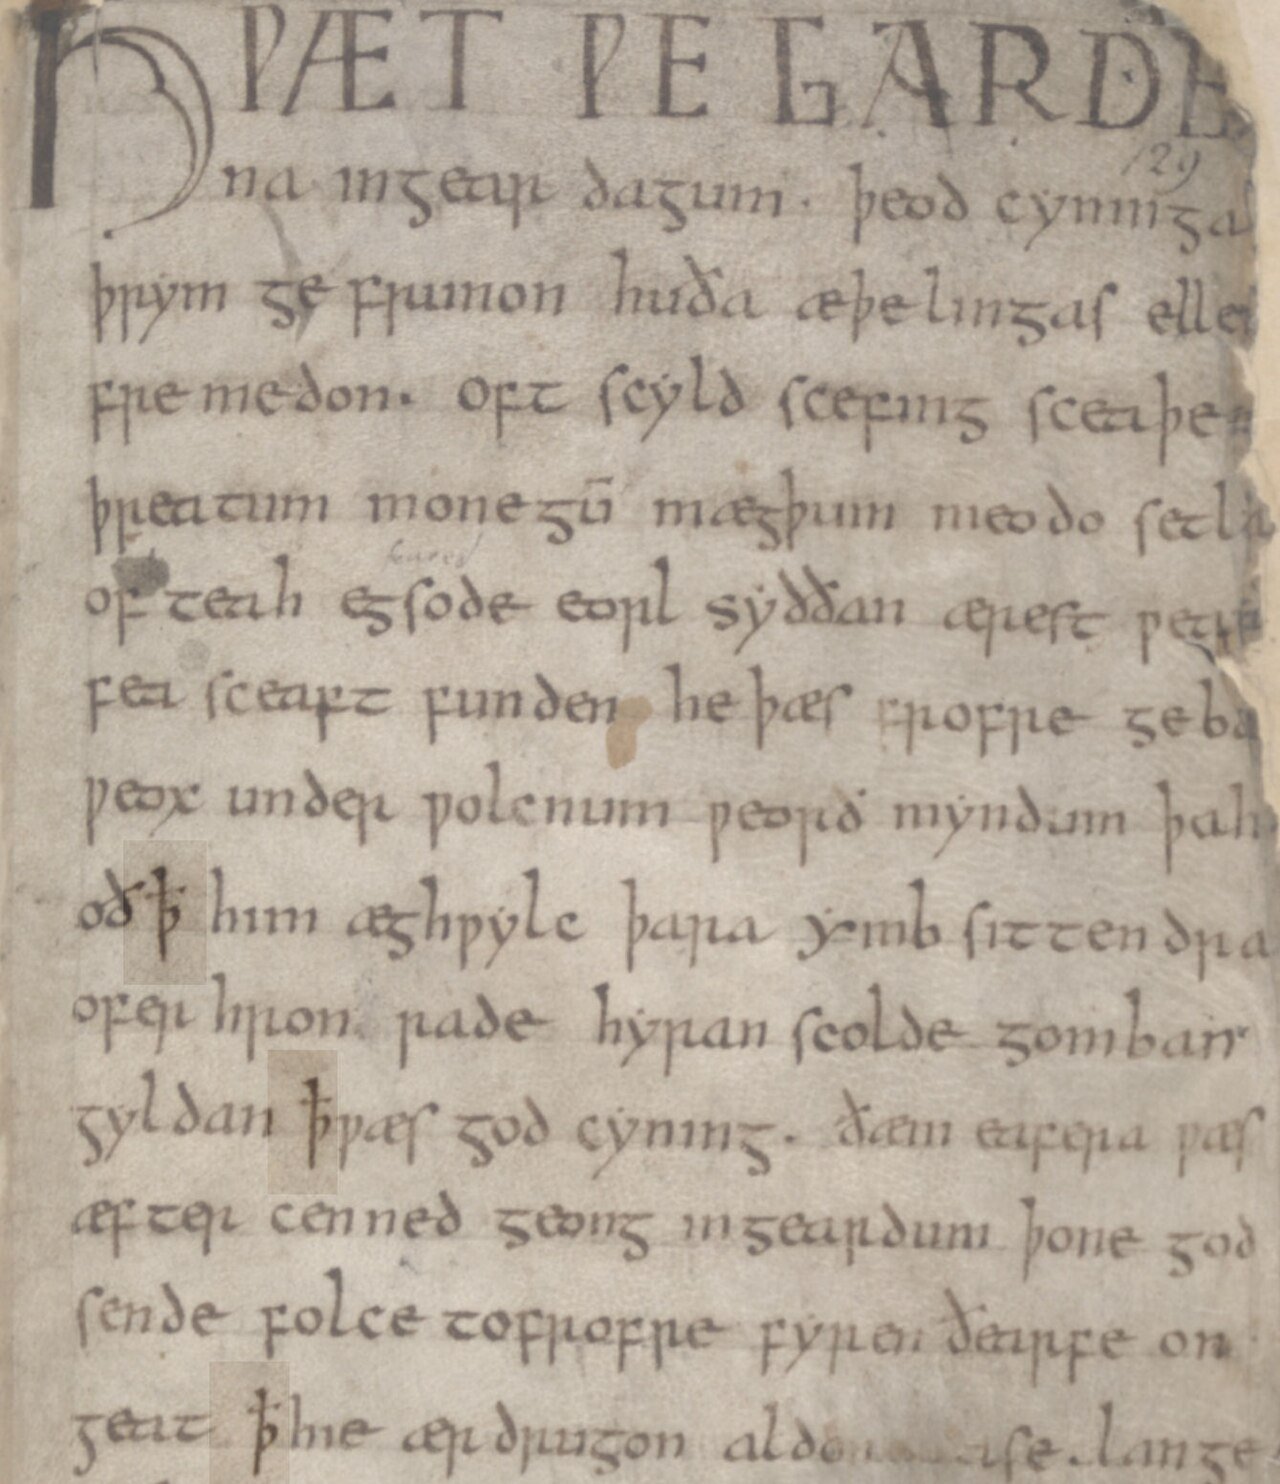 HǷÆT ǷE GARDE
na ingear dagum . þeod cyninga
þrym ge frunon huða æþelingas ellen
fremedon . oft scyld scefing sceaþe
þreatum monegū mægþum meodo setla
of teah egsode eorl syððan ærest ƿear
fea sceaft funden he þæs frofre geba
ƿeox under ƿolcnum ƿeorð myndum þah
oð ꝥ him æghƿylc þara ymb sittendra
ofer hron rade hyran scolde gomban
gyldan ꝥ ƿæs god cyning . ðæm eafera ƿæs
æfter cenned geong ingeardum þone god
sende folce tofrofre fyren ðearfe on
geat ꝥ hie ær drugon aldo ase . lange
129